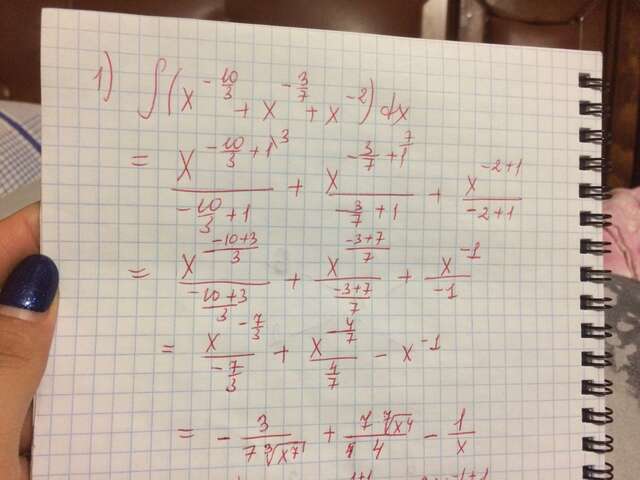 1) ∫(x^(-10/3) + x^(-3/7) + x^(-2)) dx
= x^(-10/3 + 1\3)/(-10/3 + 1) + x^(-3/7 + 1\7)/(-3/7 + 1) + x^(-2+1)/(-2+1)
= x^((-10+3)/3)/((-10+3)/3) + x^((-3+7)/7)/((-3+7)/7) + x^(-1)/(-1)
= x^(-7/3)/(-7/3) + x^(-4/7)/(4/7) - x^(-1)
= - 3/(7 ∛(x^7)) + 7 ⁷√(x^4)/4 - 1/x